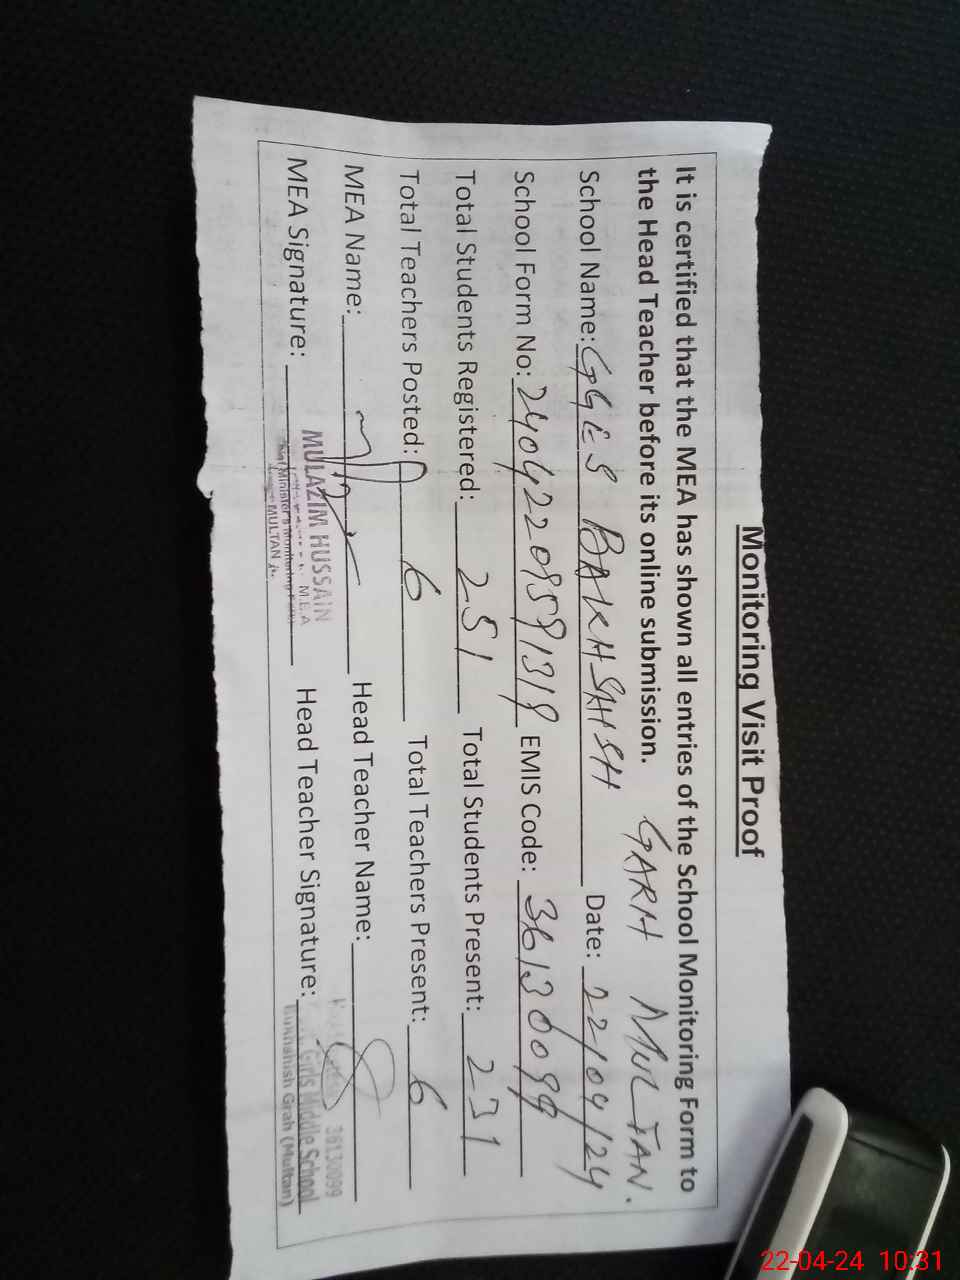 Monitoring Visit Proof
It is certified that the MEA has shown all entries of the School Monitoring Form to
the Head Teacher before its online submission.
GARH MULTAN.
School Name: GGES BAKHSHISH Date: 22/04/24
School Form No: EMIS Code: 36130099
Total Students Registered: 251 Total Students Present: 231
Total Teachers Posted: 6 Total Teachers Present: 6
MEA Name: Head Teacher Name:
MEA Signature: Head Teacher Signature:
MULAZIM HUSSAIN
M.E.A
Minister's Monitoring
MULTAN
36130099
Girls Middle School
Bukhshish Grah (Multan)
22-04-24 10:31